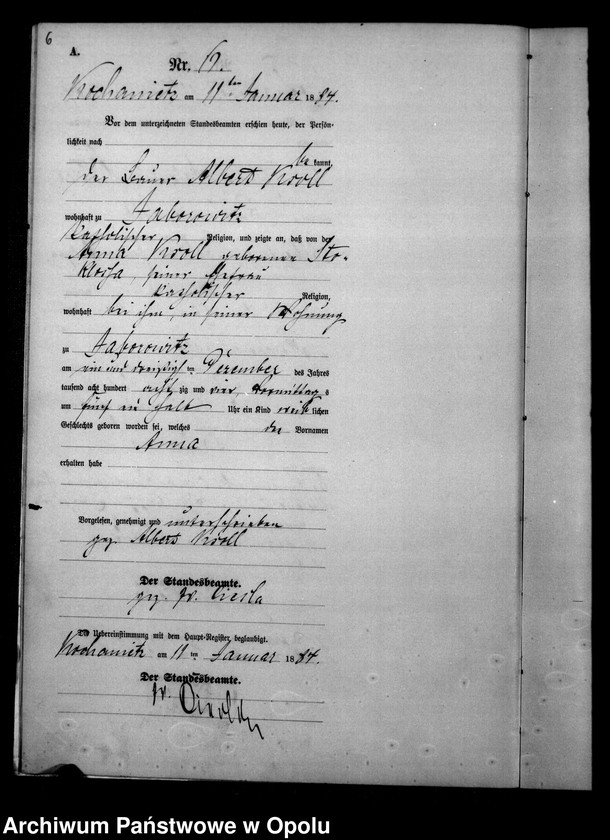 6
A.
Nr. 6.
Kochanietz am 11ten Januar 1884.
Vor dem unterzeichneten Standesbeamten erschien heute, der Persön-
lichkeit nach
bekannt,
der Bauer Albert Kroll
wohnhaft zu Jaborowitz
katholischer Religion, und zeigte an, daß von der
Anna Kroll geborenen Sto-
klossa, seiner Ehefrau
katholischer Religion,
wohnhaft bei ihm, in seiner Wohnung
zu Jaborowitz
am ein und dreißigsten Dezember des Jahres
tausend acht hundert acht zig und vier, Vormittags
um fünf ein halb Uhr ein Kind weiblichen
Geschlechts geboren worden sei, welches den Vornamen
Anna
erhalten habe
Vorgelesen, genehmigt und unterschrieben
gez. Albert Kroll
Der Standesbeamte.
gez. Fr. Ciesla
Die Uebereinstimmung mit dem Haupt-Register beglaubigt.
Kochanietz am 11ten Januar 1884.
Der Standesbeamte.
Fr.
Archiwum Państwowe w Opolu